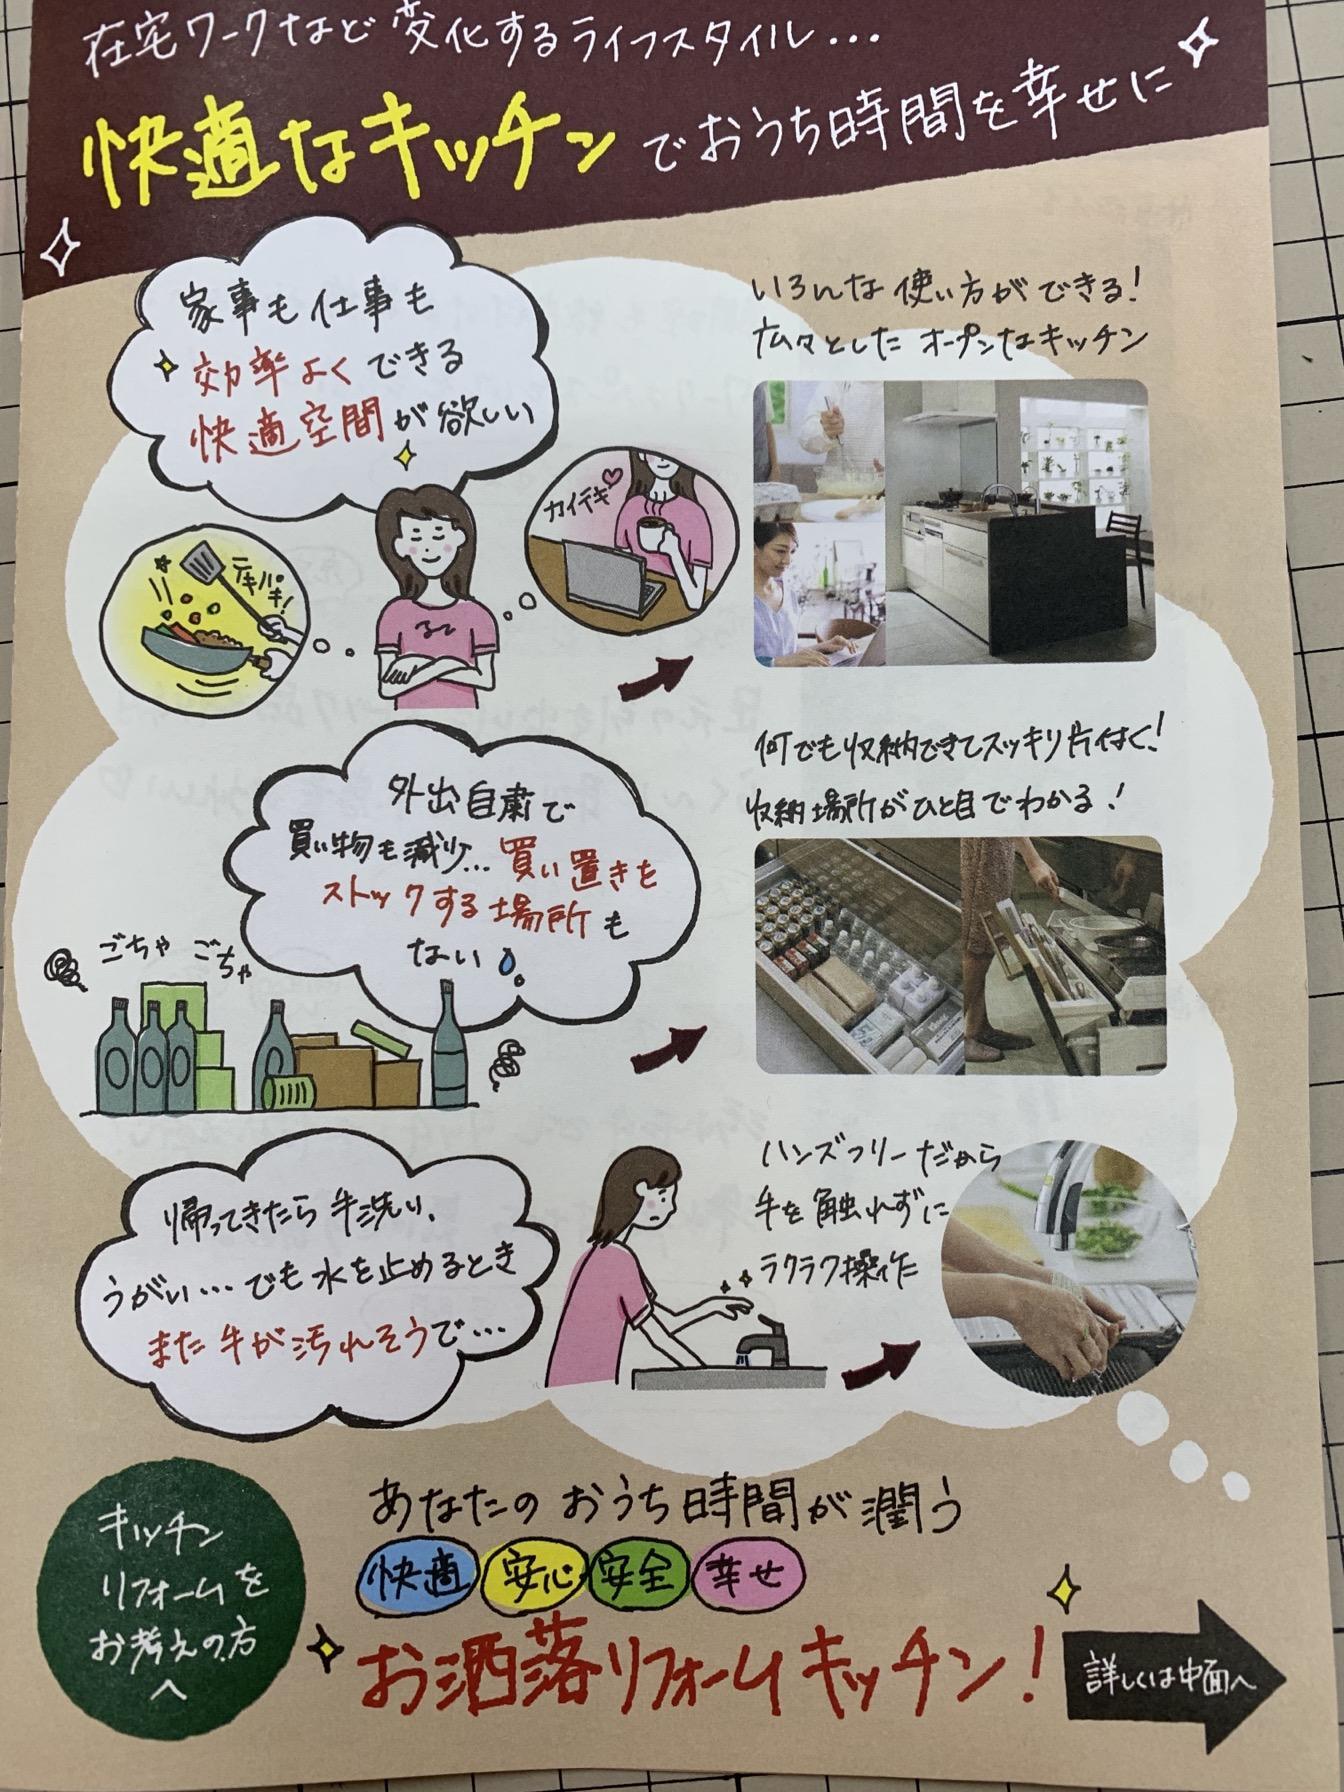 在宅ワークなど変化するライフスタイル...
快適なキッチンでおうち時間を幸せに
家事も仕事も
効率よくできる
快適空間が欲しい
テキパキ!
カイテキ
いろんな使い方ができる!
広々としたオープンなキッチン
外出自粛で
買い物も減少...買い置きを
ストックする場所も
ない
ごちゃごちゃ
何でも収納できてスッキリ片付く!
収納場所がひと目でわかる!
帰ってきたら手洗い、
うがい...でも水を止めるとき
また手が汚れそうで...
ハンズフリーだから
手を触れずに
ラクラク操作
キッチン
リフォームを
お考えの方
へ
あなたのおうち時間が潤う
快適 安心 安全 幸せ
お洒落リフォームキッチン!
詳しくは中面へ